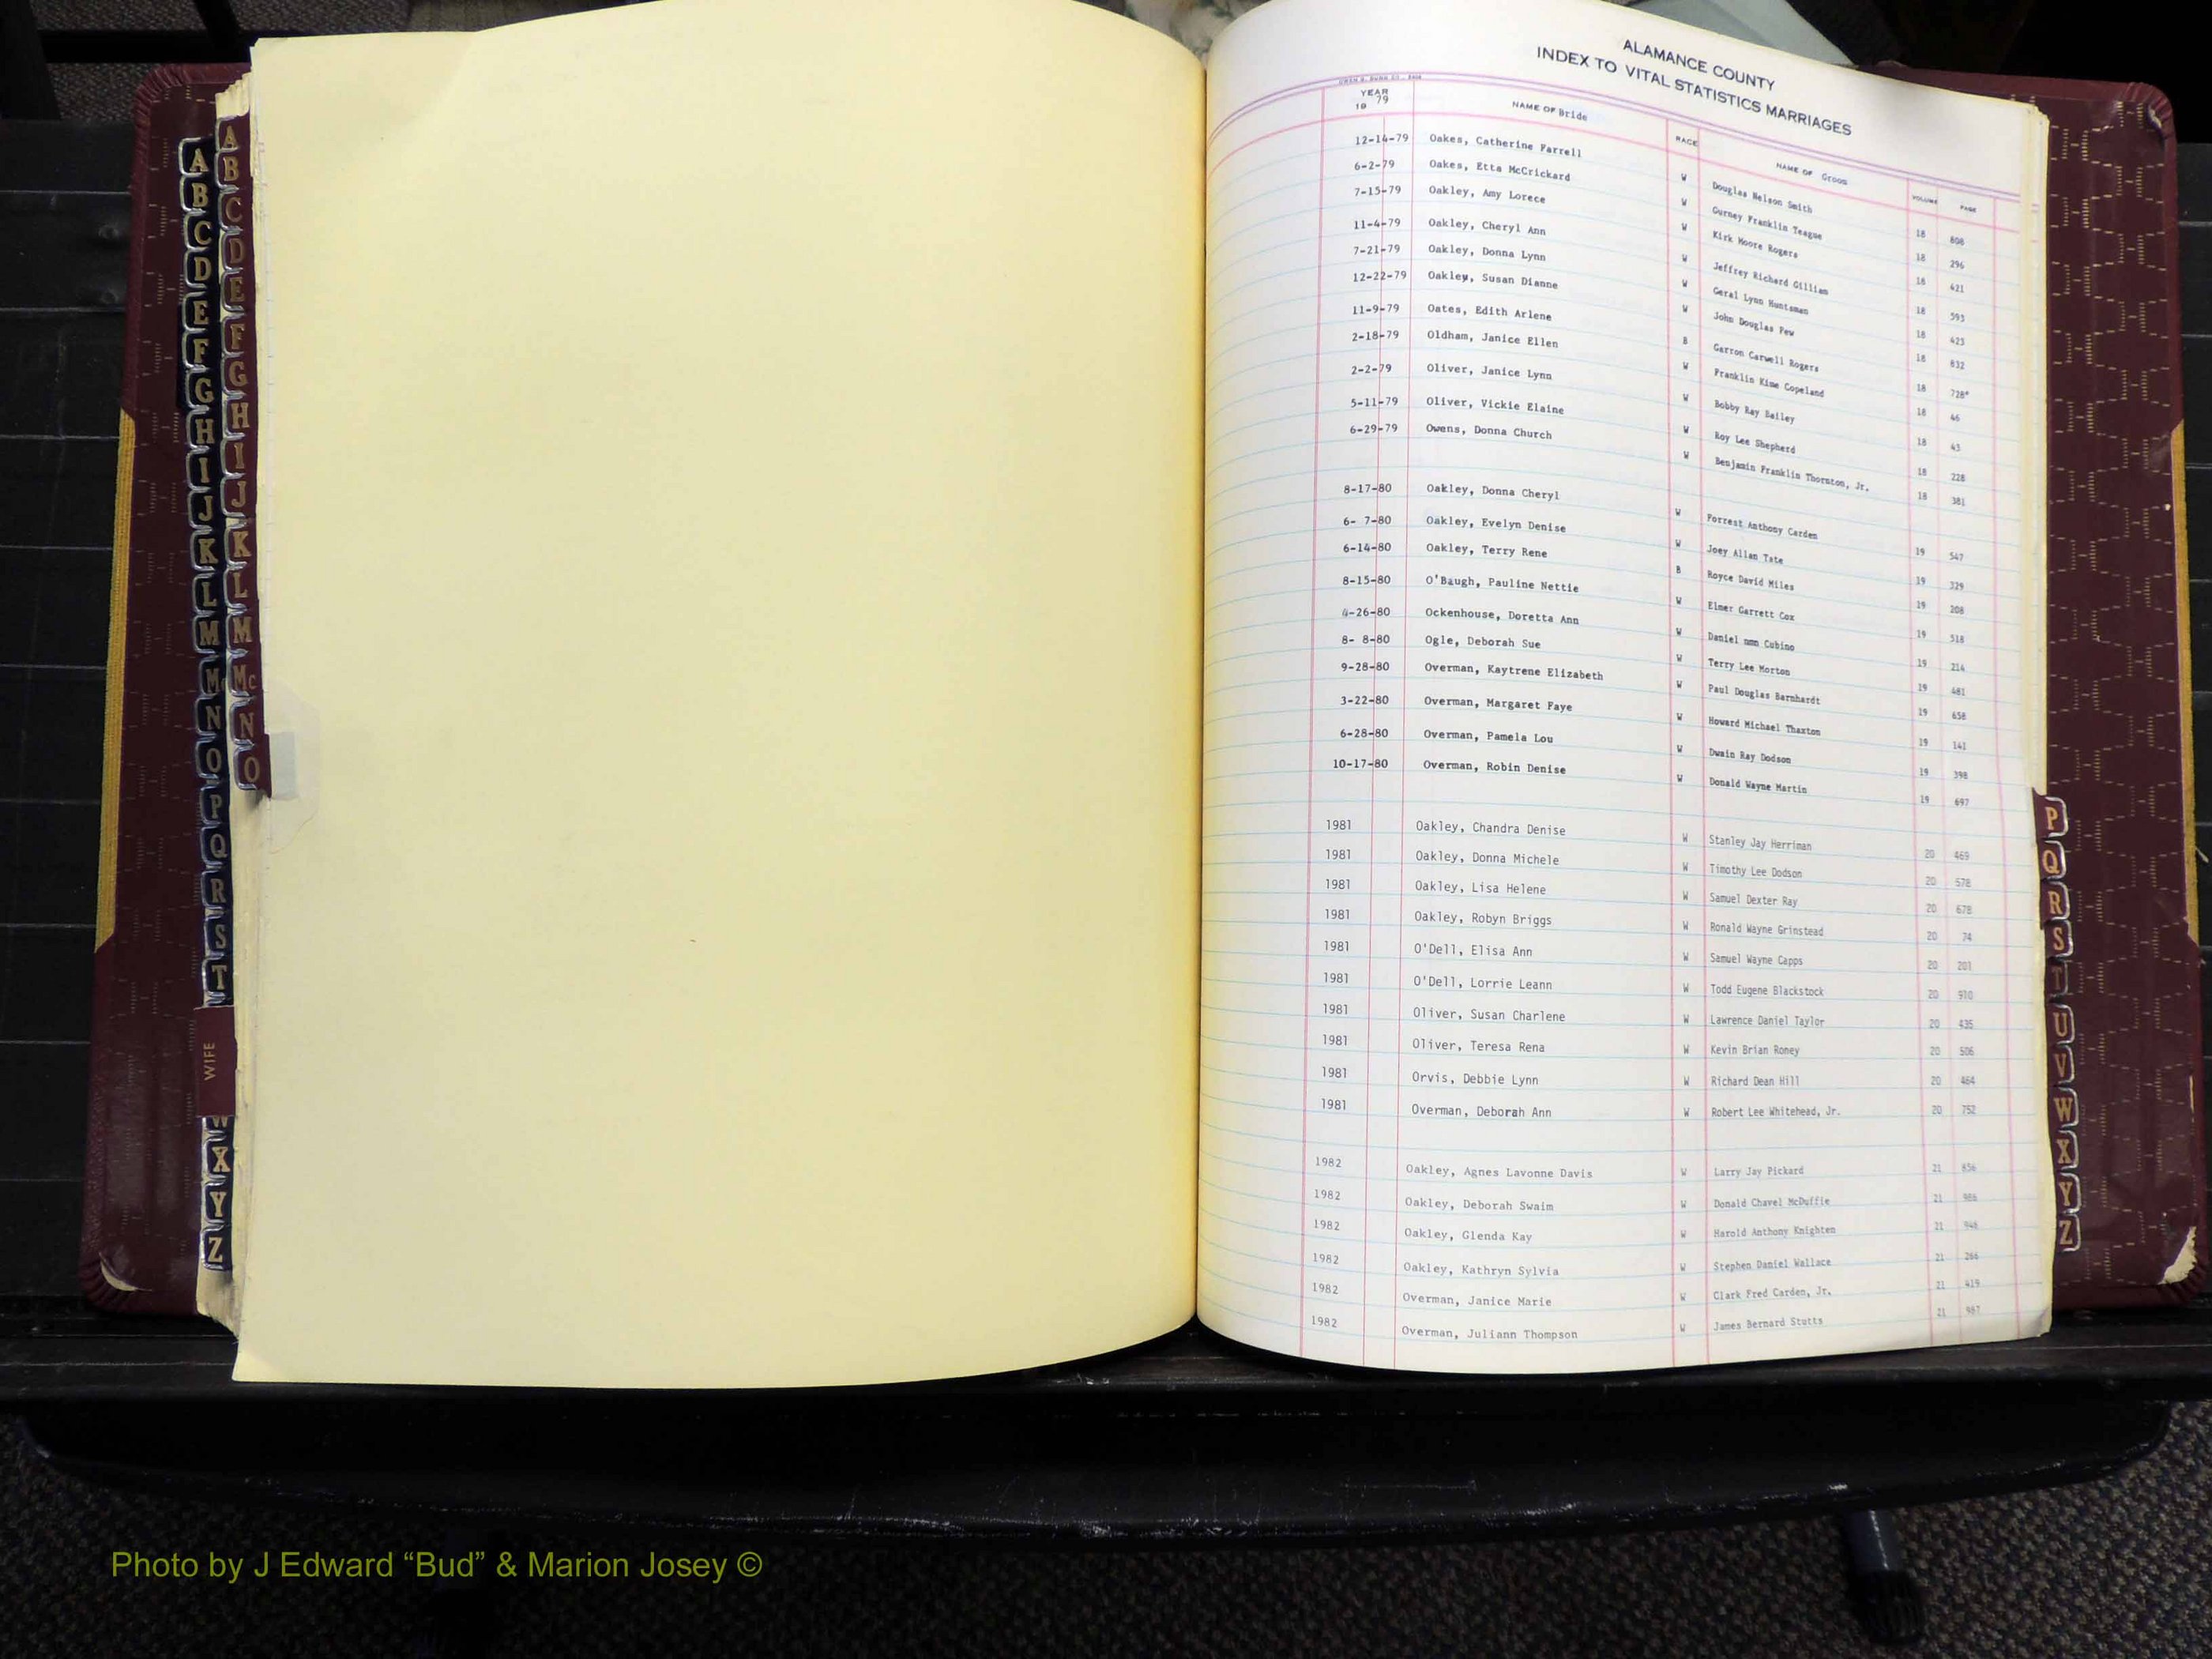 ALAMANCE COUNTY
INDEX TO VITAL STATISTICS MARRIAGES
YEAR 19 79 NAME OF Bride RACE NAME OF Groom VOLUME PAGE
12-14-79 Oakes, Catherine Farrell W Douglas Nelson Smith 18 808
6-2-79 Oakes, Etta McCrickard W Gurney Franklin Teague 18 296
7-15-79 Oakley, Amy Lorece W Kirk Moore Rogers 18 421
11-4-79 Oakley, Cheryl Ann W Jeffrey Richard Gilliam 18 593
7-21-79 Oakley, Donna Lynn W Geral Lynn Huntsman 18 423
12-22-79 Oakley, Susan Dianne W John Douglas Pew 18 832
11-9-79 Oates, Edith Arlene B Garron Carwell Rogers 18 728*
2-18-79 Oldham, Janice Ellen W Franklin Kime Copeland 18 46
2-2-79 Oliver, Janice Lynn W Bobby Ray Bailey 18 43
5-11-79 Oliver, Vickie Elaine W Roy Lee Shepherd 18 228
6-29-79 Owens, Donna Church W Benjamin Franklin Thornton, Jr. 18 381
8-17-80 Oakley, Donna Cheryl W Forrest Anthony Carden 19 547
6- 7-80 Oakley, Evelyn Denise W Joey Allan Tate 19 329
6-14-80 Oakley, Terry Rene B Royce David Miles 19 208
8-15-80 O'Baugh, Pauline Nettie W Elmer Garrett Cox 19 518
4-26-80 Ockenhouse, Doretta Ann W Daniel nmn Cubino 19 214
8- 8-80 Ogle, Deborah Sue W Terry Lee Morton 19 481
9-28-80 Overman, Kaytrene Elizabeth W Paul Douglas Barnhardt 19 658
3-22-80 Overman, Margaret Faye W Howard Michael Thaxton 19 141
6-28-80 Overman, Pamela Lou W Dwain Ray Dodson 19 398
10-17-80 Overman, Robin Denise W Donald Wayne Martin 19 697
1981 Oakley, Chandra Denise W Stanley Jay Herriman 20 469
1981 Oakley, Donna Michele W Timothy Lee Dodson 20 578
1981 Oakley, Lisa Helene W Samuel Dexter Ray 20 678
1981 Oakley, Robyn Briggs W Ronald Wayne Grinstead 20 74
1981 O'Dell, Elisa Ann W Samuel Wayne Capps 20 201
1981 O'Dell, Lorrie Leann W Todd Eugene Blackstock 20 910
1981 Oliver, Susan Charlene W Lawrence Daniel Taylor 20 435
1981 Oliver, Teresa Rena W Kevin Brian Roney 20 506
1981 Orvis, Debbie Lynn W Richard Dean Hill 20 464
1981 Overman, Deborah Ann W Robert Lee Whitehead, Jr. 20 752
1982 Oakley, Agnes Lavonne Davis W Larry Jay Pickard 21 856
1982 Oakley, Deborah Swaim W Donald Chavel McDuffie 21 986
1982 Oakley, Glenda Kay W Harold Anthony Knighten 21 946
1982 Oakley, Kathryn Sylvia W Stephen Daniel Wallace 21 266
1982 Overman, Janice Marie W Clark Fred Carden, Jr. 21 419
1982 Overman, Juliann Thompson W James Bernard Stutts 21 987
A B C D E F G H I J K L M Mc N O P Q R S T
WIFE
W X Y Z
A B C D E F G H I J K L M Mc N O
P Q R S T U V W X Y Z
Photo by J Edward “Bud” & Marion Josey ©